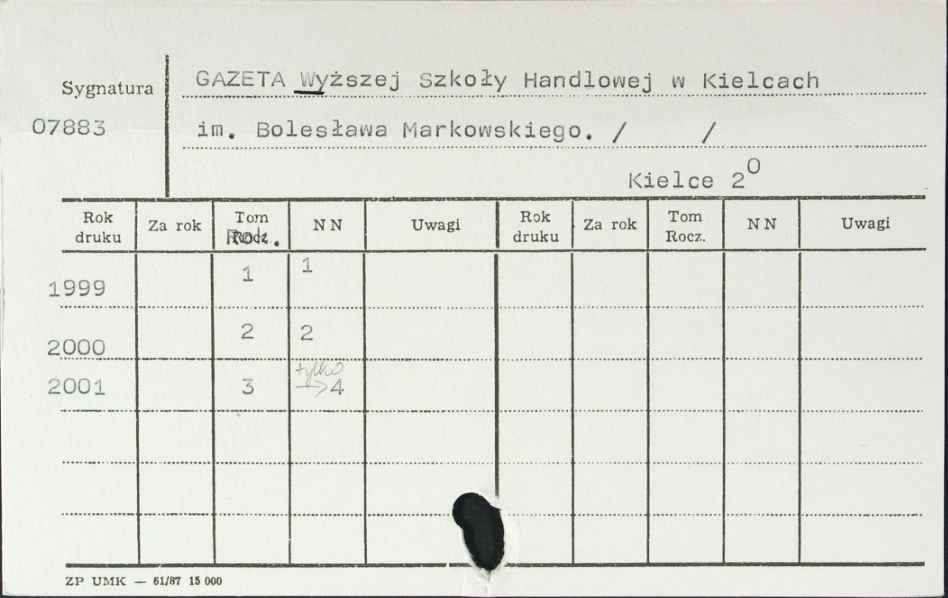 Sygnatura
07883
GAZETA Wyższej Szkoły Handlowej w Kielcach
im. Bolesława Markowskiego. /     /
Kielce 2⁰
Rok druku | Za rok | Tom Rocz. | NN | Uwagi | Rok druku | Za rok | Tom Rocz. | NN | Uwagi
1999 1 1
2000 2 2
tylko
2001 3 → 4
ZP UMK — 61/87 15 000